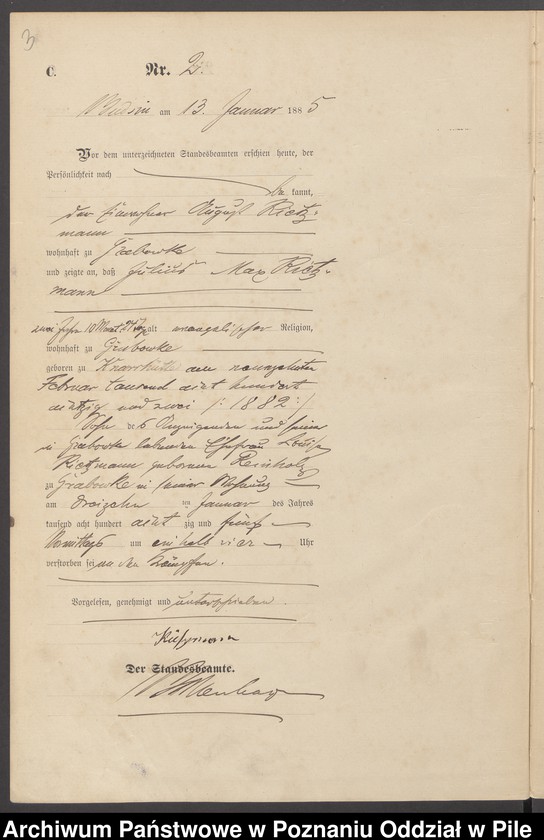 3
C. Nr. 2.
am 13. Januar 1885
Vor dem unterzeichneten Standesbeamten erschien heute, der
Persönlichkeit nach
be kannt,
der August Rietz-
mann
wohnhaft zu Grabowke
und zeigte an, daß Julius Max Rietz-
mann
zwei Jahr 10 Monat 24 Tage alt evangelischer Religion,
wohnhaft zu Grabowke
geboren zu Knarrhütte am neunzehnten
Februar tausend acht hundert
achtzig und zwei /: 1882 :/
Sohn des Anzeigenden und seiner
in Grabowke lebenden Ehefrau Louise
Rietzmann geborenen Reinholz
zu Grabowke in seiner Wohnung
am dreizehn ten Januar des Jahres
tausend acht hundert acht zig und fünf
Vormittags um ein halb vier Uhr
verstorben sei an den Krämpfen.
Vorgelesen, genehmigt und unterschrieben.
Der Standesbeamte.
Archiwum Państwowe w Poznaniu Oddział w Pile